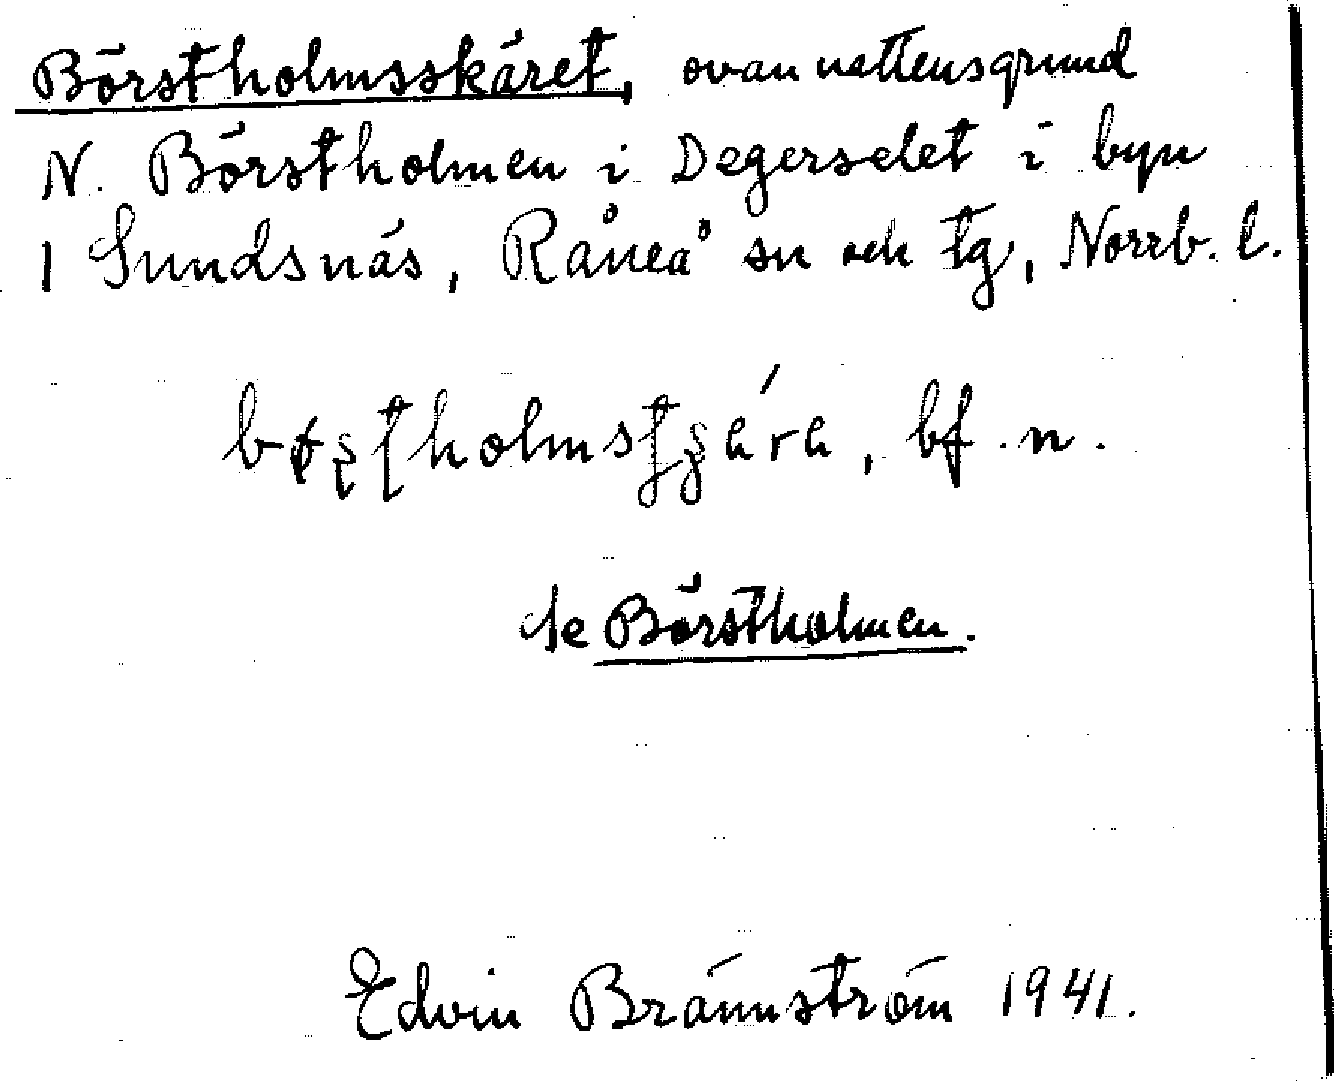 Börstholmsskäret, ovanvattensgrund
N. Börstholmen i Degerselet i byn
1 Sundsnäs, Råneå sn och tg, Norrb. l.
bf. n.
Se Börstholmen.
Edvin Brännström 1941.